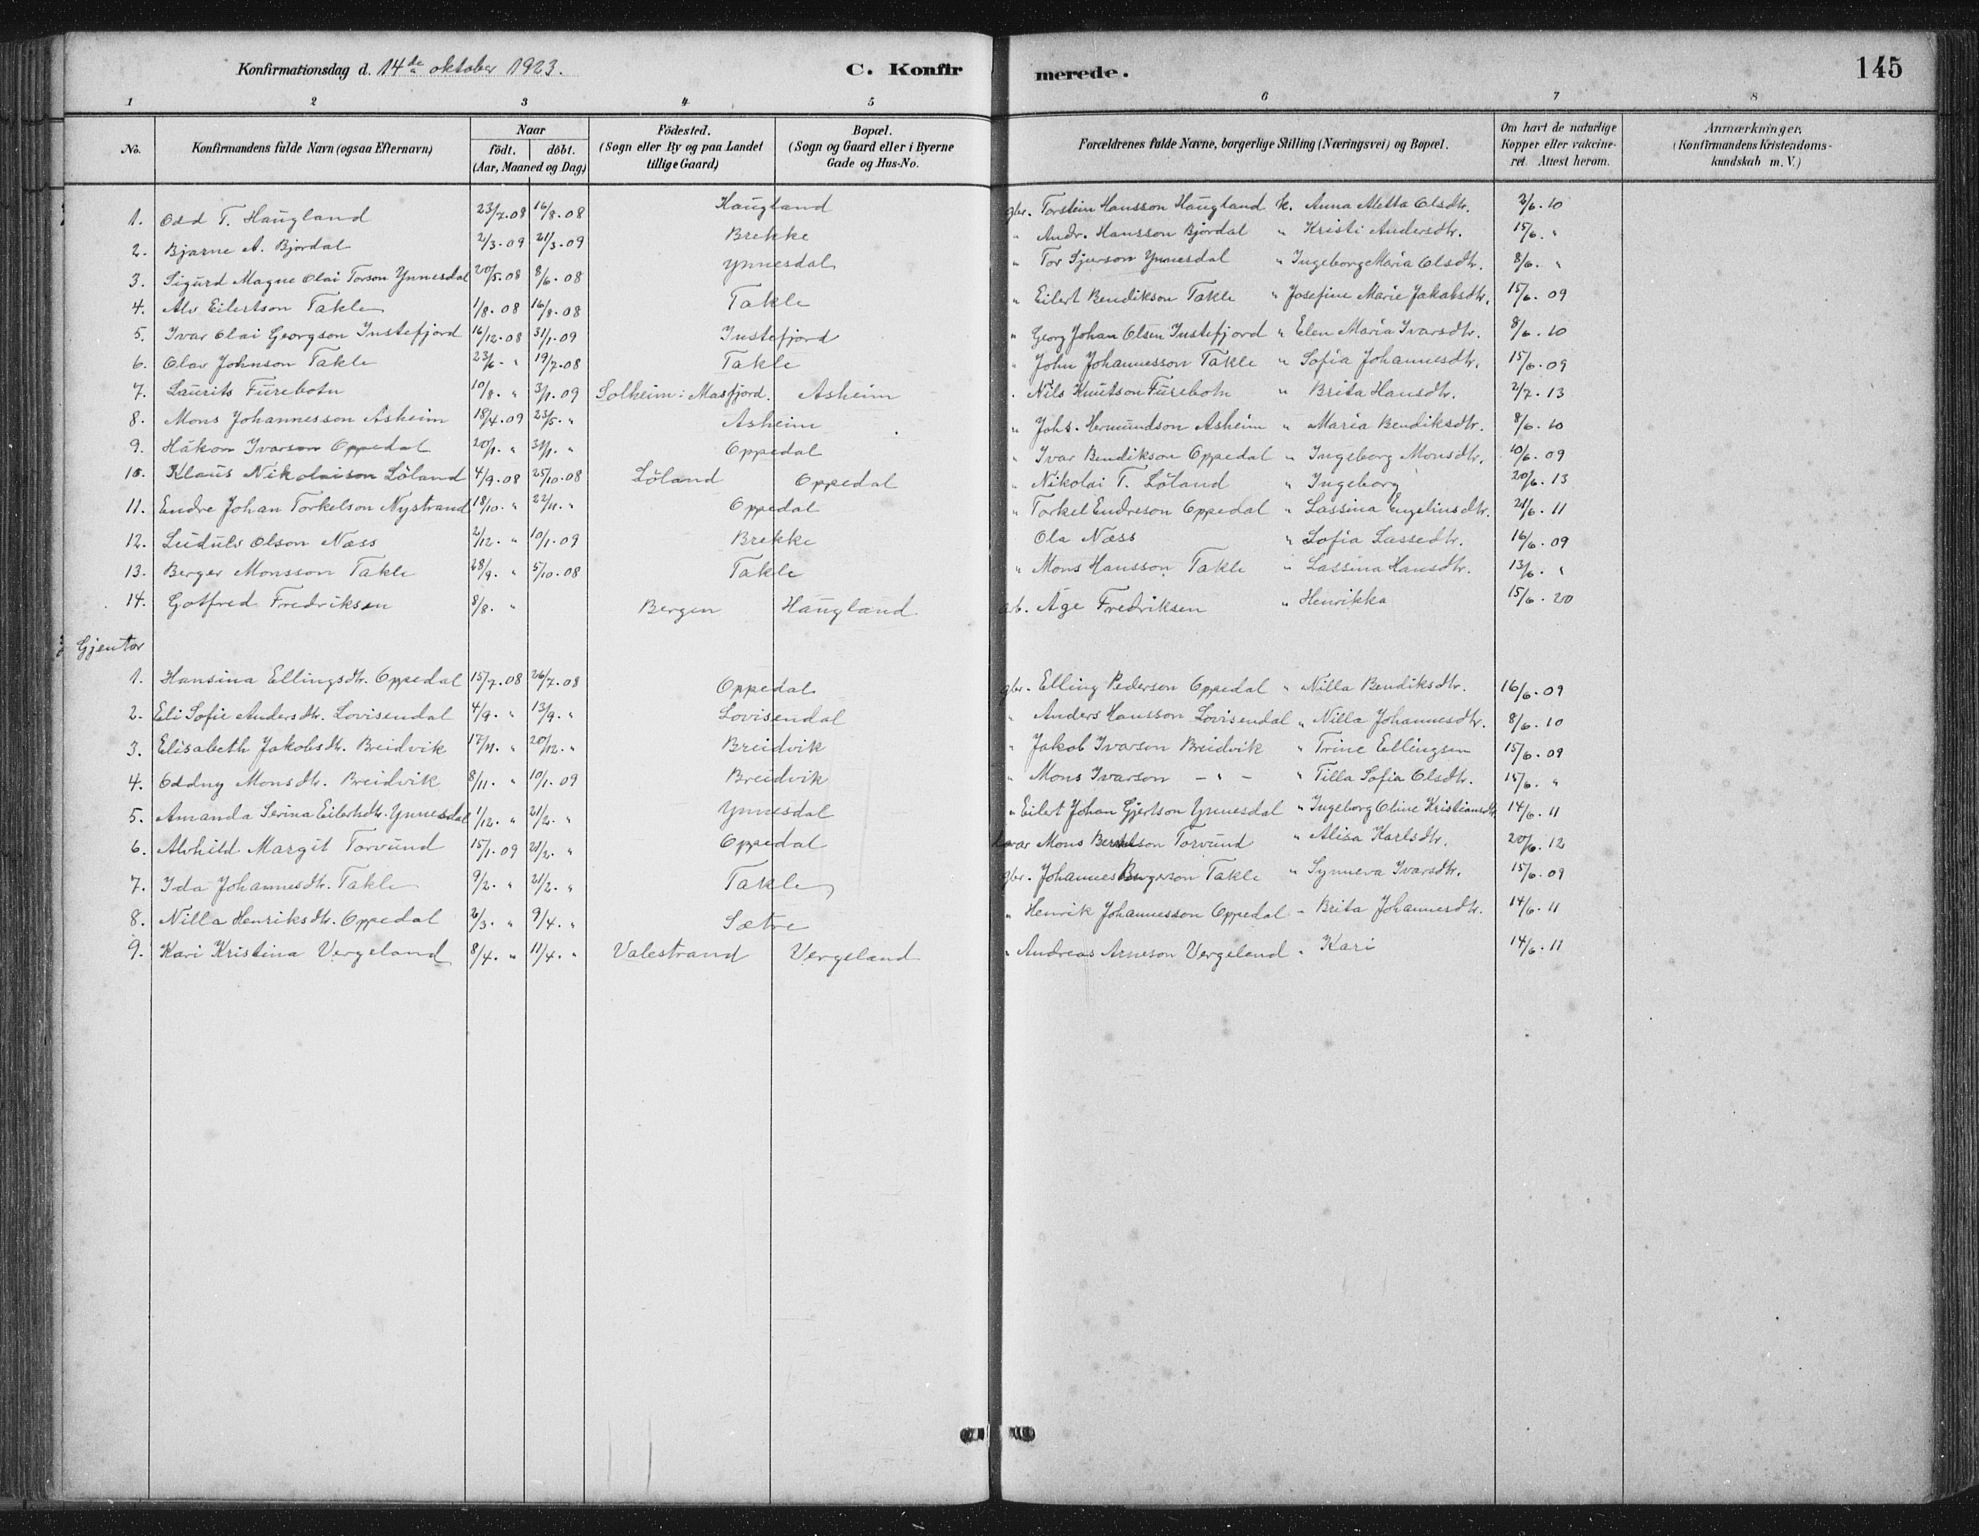 Konfirmationsdag d. 14de oktober 1923. C. Konfirmerede. 145
1 2 3 4 5 6 7 8
No. Konfirmandens fulde Navn (ogsaa Efternavn) Naar födt. döbt. (Aar, Maaned og Dag) Födested. (Sogn eller By og paa Landet tillige Gaard) Bopæl. (Sogn og Gaard eller i Byerne Gade og Hus-No. Forældrenes fulde Navne, borgerlige Stilling (Næringsvei) og Bopæl. Om havt de naturlige Kopper eller vakcineret. Attest herom. Anmærkninger. (Konfirmandens Kristendomskundskab m. V.)
1. Odd T. Haugland 23/7.08 16/8.08 Haugland gbr. Torstein Hansson Haugland k. Anna Metta Olsdtr. 2/6.10
2. Bjarne A. Bjordal 2/3.09 21/3.09 Brekke " Andr. Hansson Bjordal " Kristi Andersdtr. 15/6. "
3. Sigurd Magne Olai Torson Ynnesdal 20/5.08 8/6.08 Ynnesdal " Tor Gjerson Ynnesdal " Ingeborg Maria Olsdtr. 8/6. "
4. Alv Eilertson Takle 1/8.08 16/8.08 Takle " Eilert Bendikson Takle " Josefine Marie Jakobsdtr. 15/6.09
5. Ivar Olai Georgson Instefjord 16/12.08 31/1.09 Instefjord " Georg Johan Olsen Instefjord " Elen Maria Ivarsdtr. 8/6.10
6. Olav Johnson Takle 23/6. " 19/7.08 Takle " John Johannesson Takle " Sofia Johannesdtr. 15/6.09
7. Laurits Furebotn 10/8. " 3/1.09 Solheim: Masfjord. Asheim " Nils Knutson Furebotn " Brita Hansdtr. 2/7.13
8. Mons Johannesson Asheim 18/4.09 23/5. " Asheim " Johs. Hermundson Asheim " Maria Bendiksdtr. 8/6.10
9. Håkon Ivarson Oppedal 20/1. " 31/1. " Oppedal " Ivar Bendikson Oppedal " Ingeborg Monsdtr. 10/6.09
10. Klaus Nikolaison Löland 4/9.08 25/10.08 Löland Oppedal " Nikolai T. Löland " Ingeborg 20/6.13
11. Endre Johan Torkelson Nystrand 18/10. " 22/11. " Oppedal " Torkel Endreson Oppedal " Lassina Engelinsdtr. 21/6.11
12. Leidulv Olson Næss 2/12. " 10/1.09 Brekke Ola Næss " Sofia Lassedtr. 16/6.09
13. Berger Monsson Takle 28/9. " 5/10.08 Takle " Mons Hansson Takle " Lassina Hansdtr. 13/6. "
14. Gotfred Fredriksen 8/8. " Bergen Haugland arb. Åge Fredriksen " Henrikka 15/6.20
Gjentor
1. Hansina Ellingsdtr. Oppedal 15/7.08 26/7.08 Oppedal gbr. Elling Pederson Oppedal " Nilla Bendiksdtr. 16/6.09
2. Eli Sofie Andersdtr. Lovisendal 4/9. " 13/9. " Lovisendal " Anders Hansson Lovisendal " Nilla Johannesdtr. 8/6.10
3. Elisabeth Jakobsdtr. Breidvik 17/11. " 20/12. " Breidvik " Jakob Ivarson Breidvik " Trine Ellingsen 15/6.09
4. Oddny Monsdtr. Breidvik 8/11. " 10/1.09 Breidvik " Mons Ivarson - " - " Tilla Sofia Olsdtr. 15/6. "
5. Amanda Serina Eilertsdtr. Ynnesdal 1/12. " 21/2. " Ynnesdal " Eilert Johan Gjertson Ynnesdal " Ingeborg Oline Kristiansdtr. 14/6.11
6. Alvhild Margit Torvund 15/1.09 21/2. " Oppedal Mons Torvund " Alisa Karlsdtr. 20/6.12
7. Ida Johannesdtr. Takle 9/2. " 21/2. " Takle gbr. Johannes Bergerson Takle " Synneva Ivarsdtr. 15/6.09
8. Nilla Henriksdtr. Oppedal 2/3. " 9/4. " Sætre " Henrik Johannesson Oppedal " Brita Johannesdtr. 14/6.11
9. Kari Kristina Vergeland 8/4. " 11/4. " Valestrand Vergeland " Andreas Arneson Vergeland " Kari 14/6.11